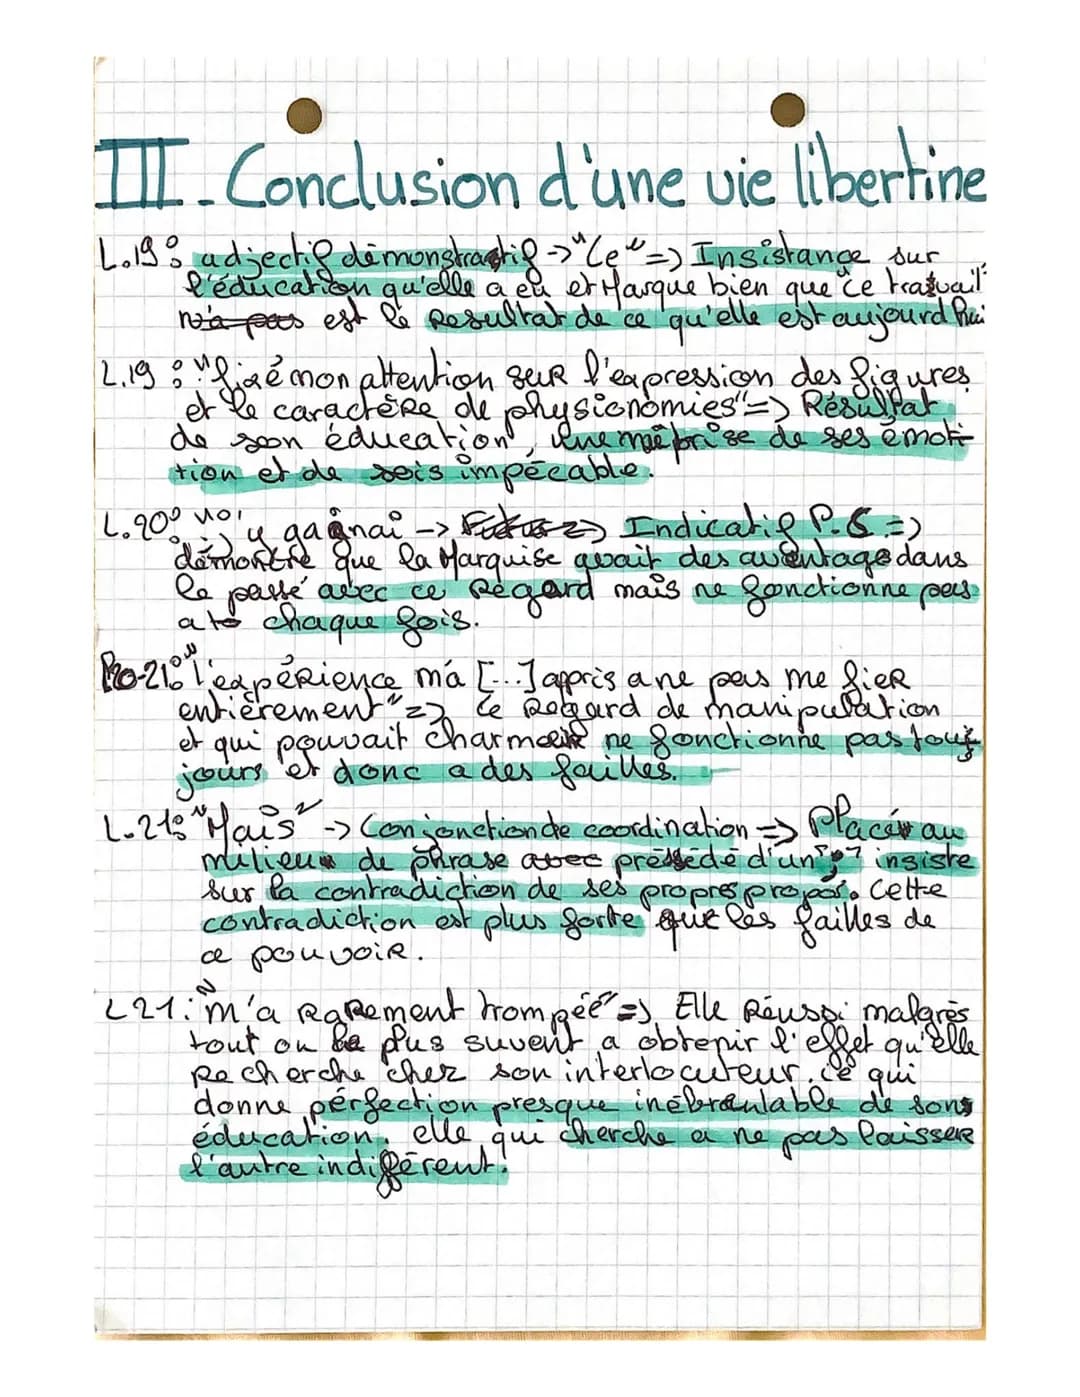 III. Conclusion d'une vie libertine
L.19: adjectif démonstratif -> "Ce" => Insistance sur
l'éducation qu'elle a eu et Marque bien que "ce travail"
n'a pas est le Resultat de ce qu'elle est aujourd'hui
L.19: "fixé mon attention sur l'expression des figures
et le caractère de physionomies" => Résultat
de son éducation, une maîprise de ses émoti-
tion et de sois impécable.
L.20: "j'y gagnai -> => Indicatif P.S =>
démontre que la Marquise avait des aventage dans
le passé avec ce Regard mais ne fonctionne pas
a chaque fois.
20-21: "l'expérience m'a [...] appris a ne pas me fier
entièrement" => Ce Regard de manipulation
et qui pouvait charmer ne fonctionne pas touj
jours et donc a des failles.
L.21: "Mais" -> Conjonction de coordination => Placér au
milieu de phrase avec préssédé d'un ";" insiste
sur la contradiction de ses propres propos. Cette
contradiction est plus forte que les failles de
ce pouvoir.
L21: "m'a rarement trompée" => Elle Réussi malgrès
tout ou le plus suvent a obtenir l'effet qu'elle
Recherche chez son interlocuteur. ce qui
donne pérfection presque inébranlable de sons
éducation, elle qui cherche a ne pas laisser
l'autre indifférent.